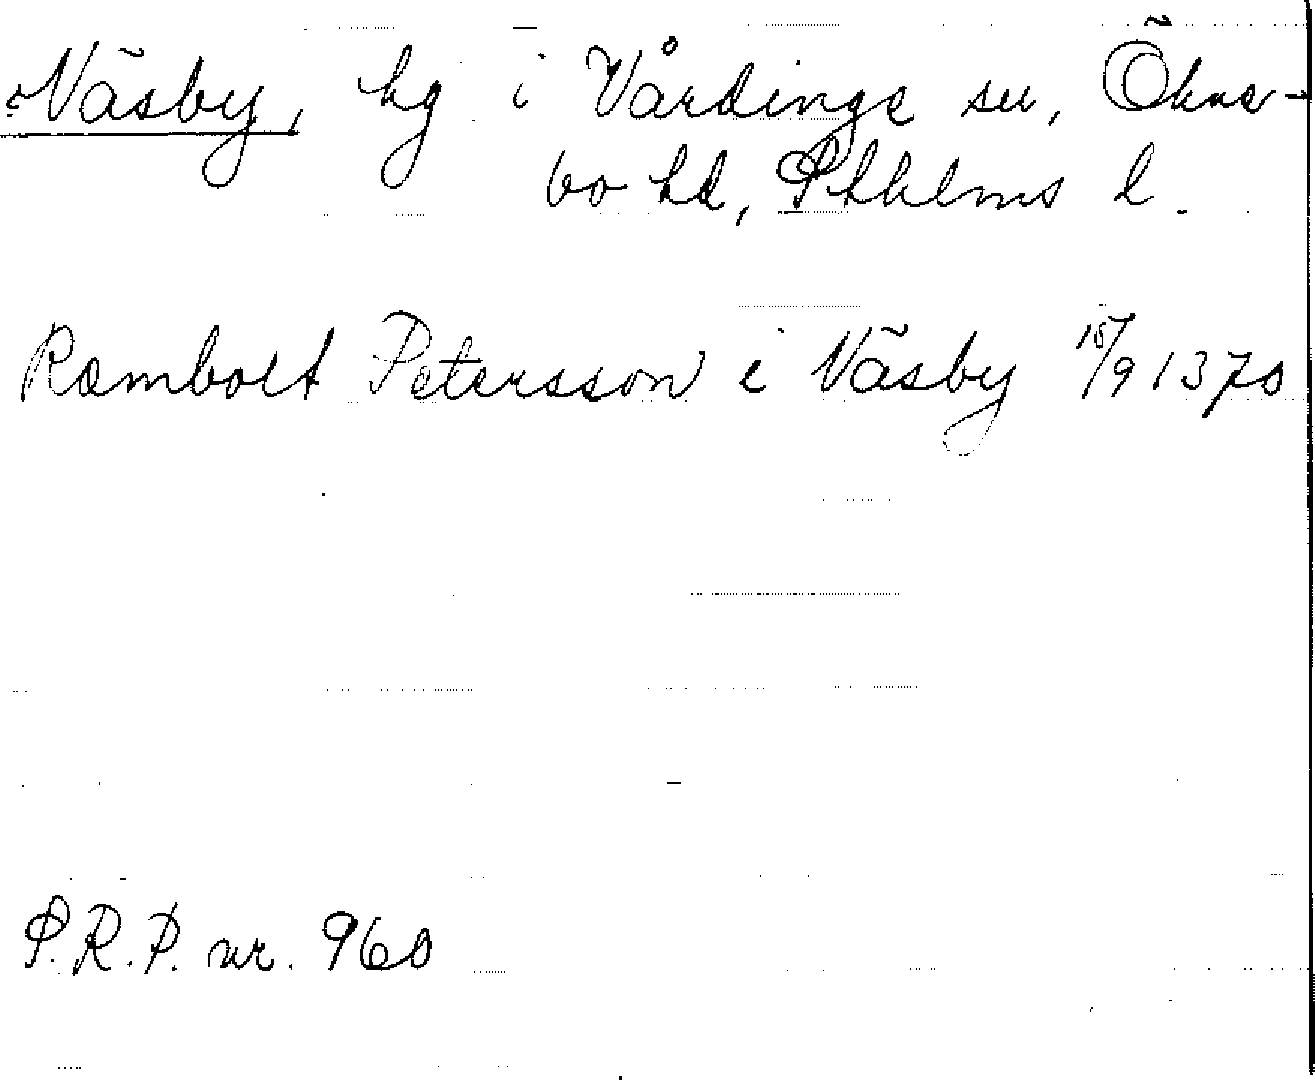 Näsby, hg i Vårdinge sn, Ökne-
bo hd, Sthlms l.
Rambolt Petersson i Näsby 15/9 1370
S.R.P. nr. 960